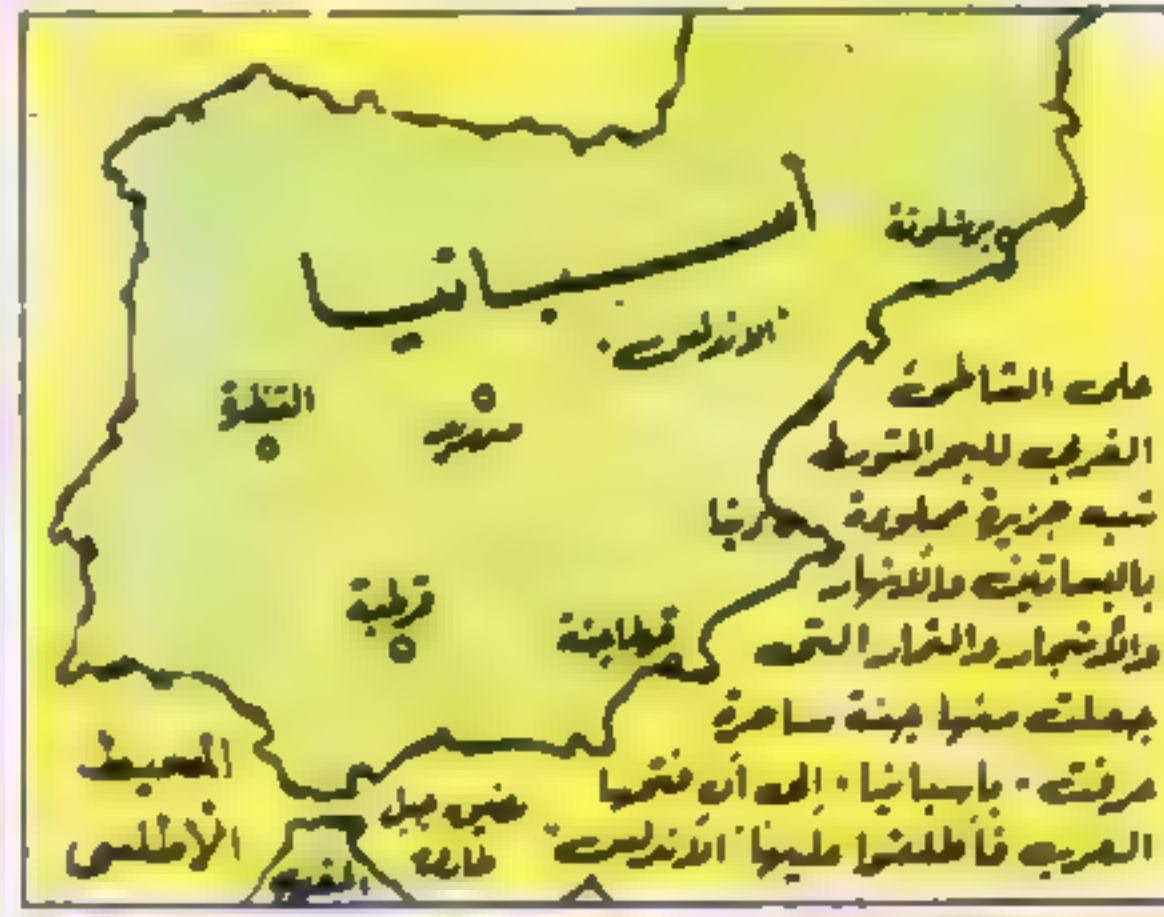 اسبانيا
"الاندلس"
برشلونة
القنطرة
مدريد
قرطبة
قرطاجنة
المحيط
الأطلسي
مضيق جبل
طارق
المغرب
على الشاطئ
الغربي للبحر المتوسط
شبه جزيرة مملوءة
بالبساتين والأنهار
والأشجار والثمار التى
جعلت منها جنة ساحرة
عرفت "بأسبانيا" إلى أن فتحها
العرب فأطلقوا عليها "الأندلس"